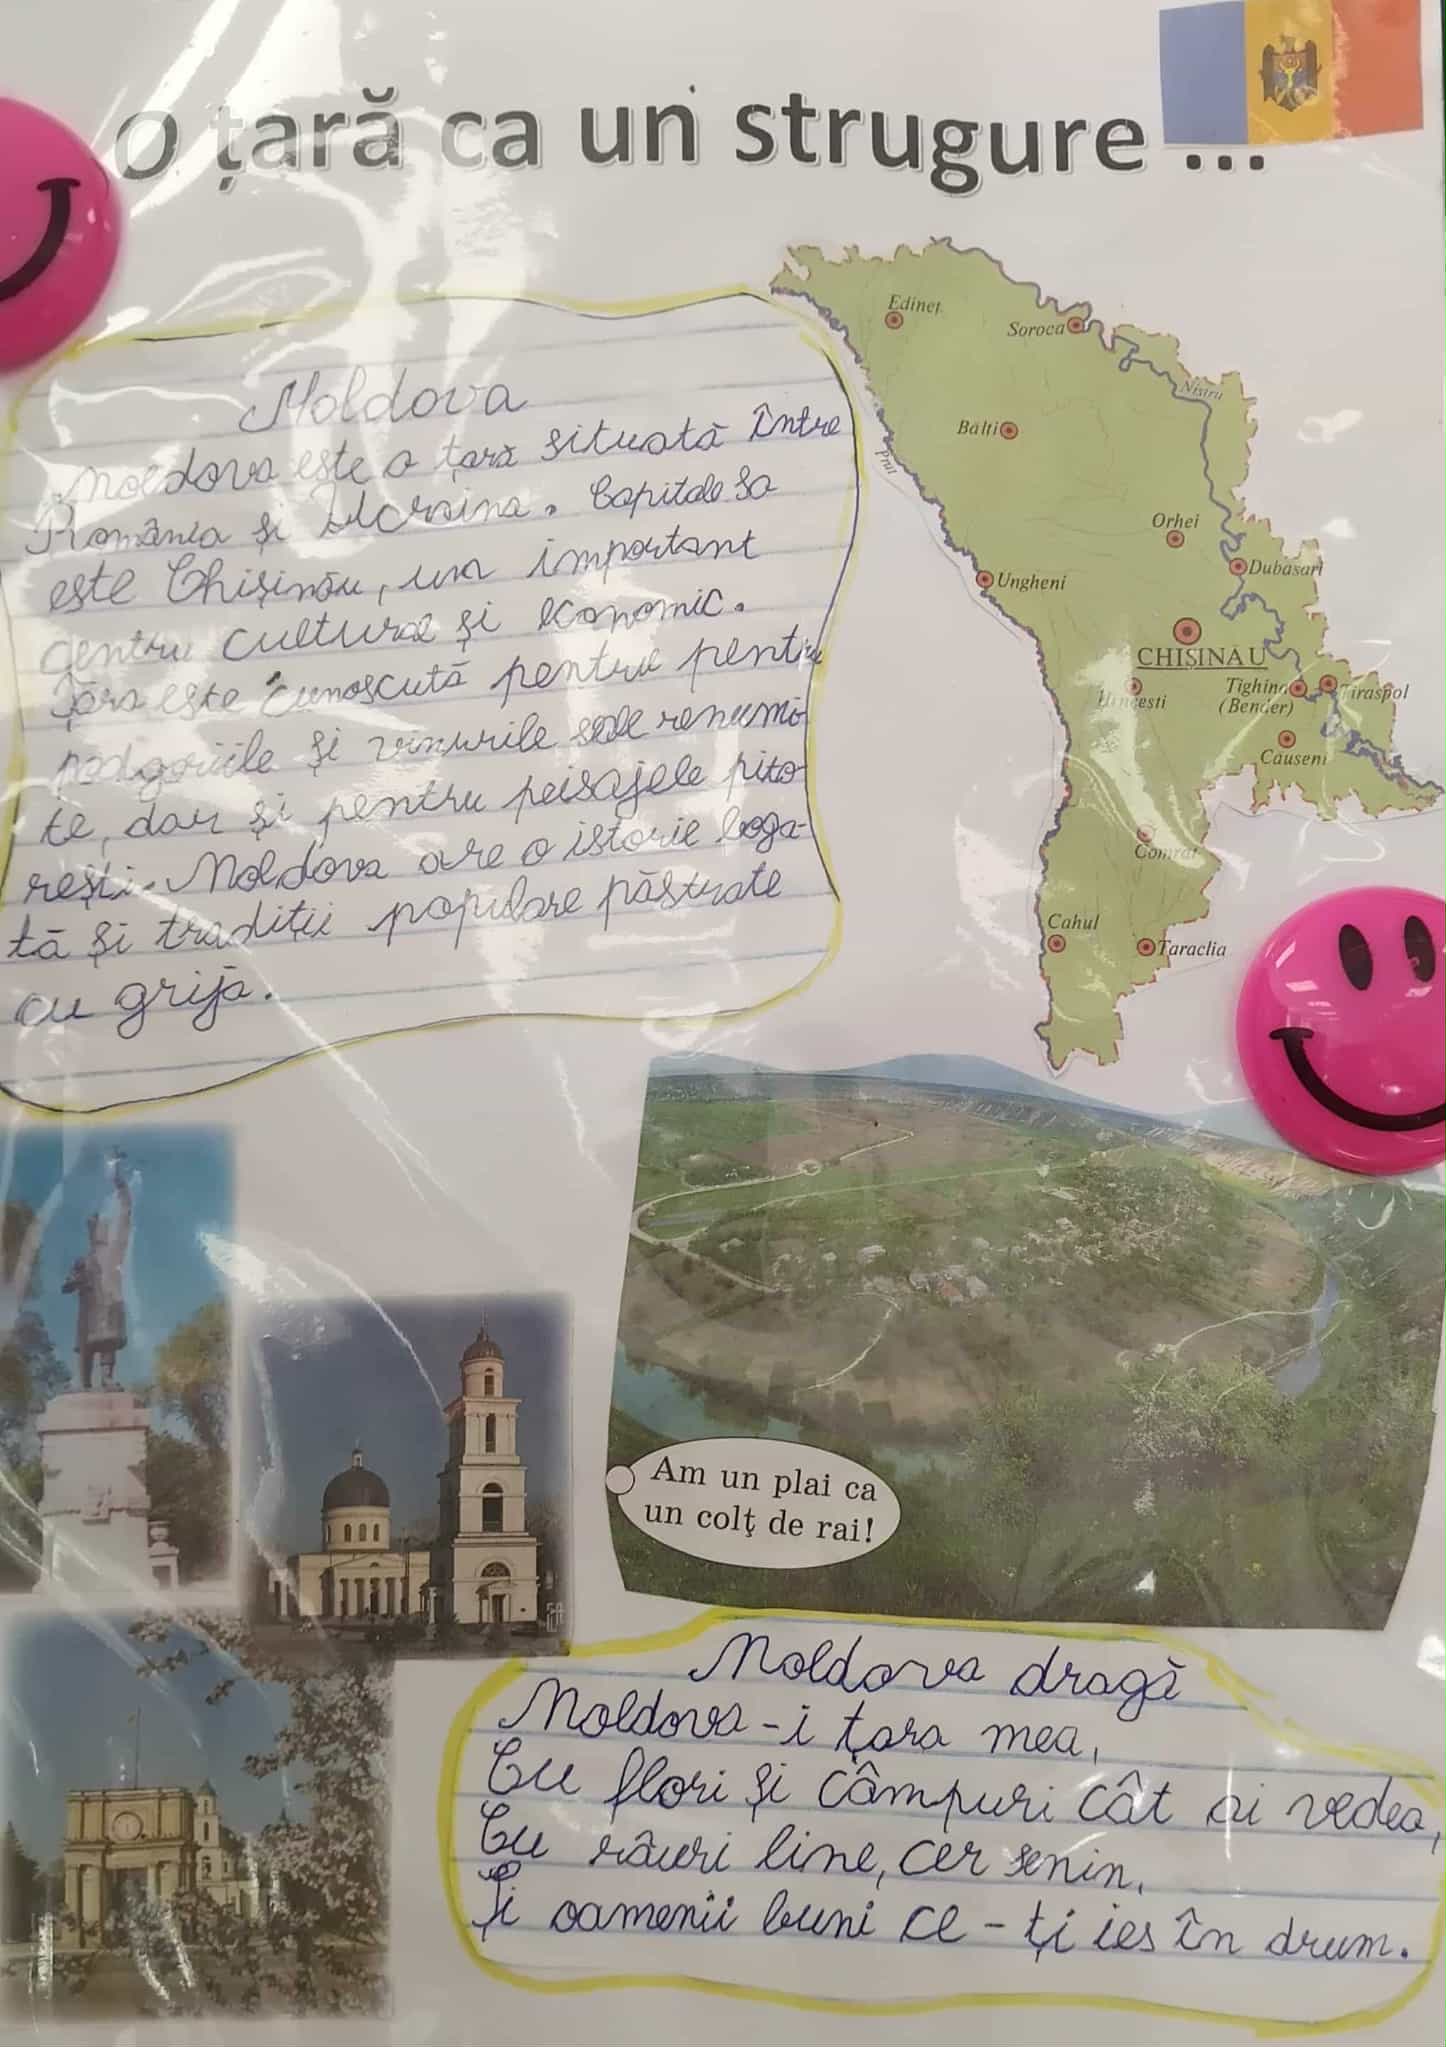 O țară ca un strugure ...
Moldova
Moldova este o țară situată între
România și Ucraina. Capitala sa
este Chișinău, un important
centru cultural și economic.
Țara este cunoscută pentru pentru
podgoriile și vinurile sale renumi-
te, dar și pentru peisajele pito-
rești. Moldova are o istorie boga-
tă și tradiții populare păstrate
cu grijă.
Edineț
Soroca
Nistru
Bălți
Prut
Orhei
Dubăsari
Ungheni
CHIȘINĂU
Hîncești
Tighina
(Bender)
Tiraspol
Căușeni
Comrat
Cahul
Taraclia
Am un plai ca
un colţ de rai!
Moldova dragă
Moldova-i țara mea,
Cu flori și câmpuri cât ai vedea,
Cu râuri line, cer senin,
Și oamenii buni ce-ți ies în drum.